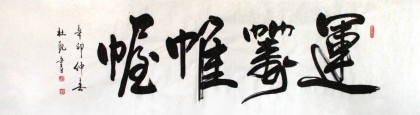 運籌帷幄
辛卯仲春
杜觀